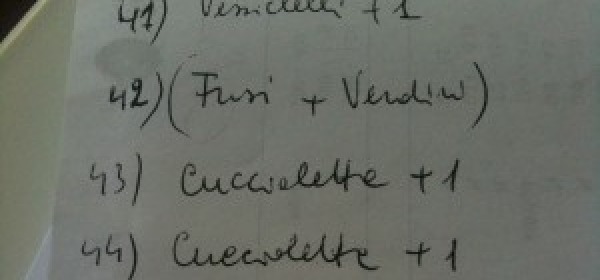 41) Vessichelli + 1
42) (Fusi + Verdini)
43) Cucciolette + 1
44) Cucciolette + 1